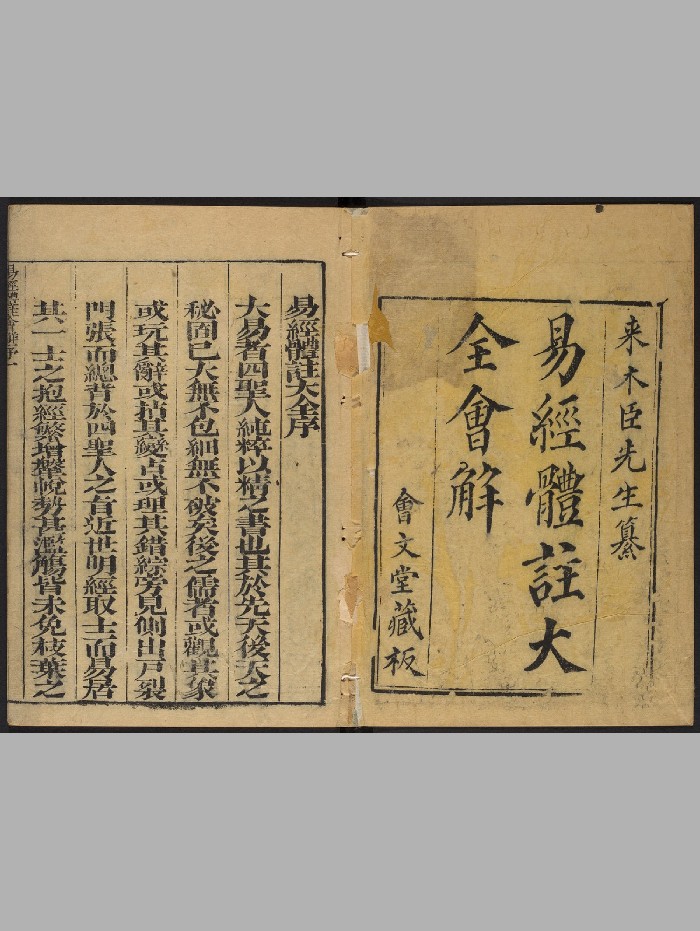 来木臣先生纂
易經體註大
全會解
會文堂藏板
易經體註大全序
大易者四聖人純粹以精之書也其於先天後天之
秘固已大無不包細無不破矣後之儒者或觀其象
或玩其辭或拈其變占或理其錯綜旁見側出戸裂
門張而總背於四聖人之旨近世明經取士而易居
其一士之抱經繁增鞶帨勢甚濫觴皆未免枝葉之